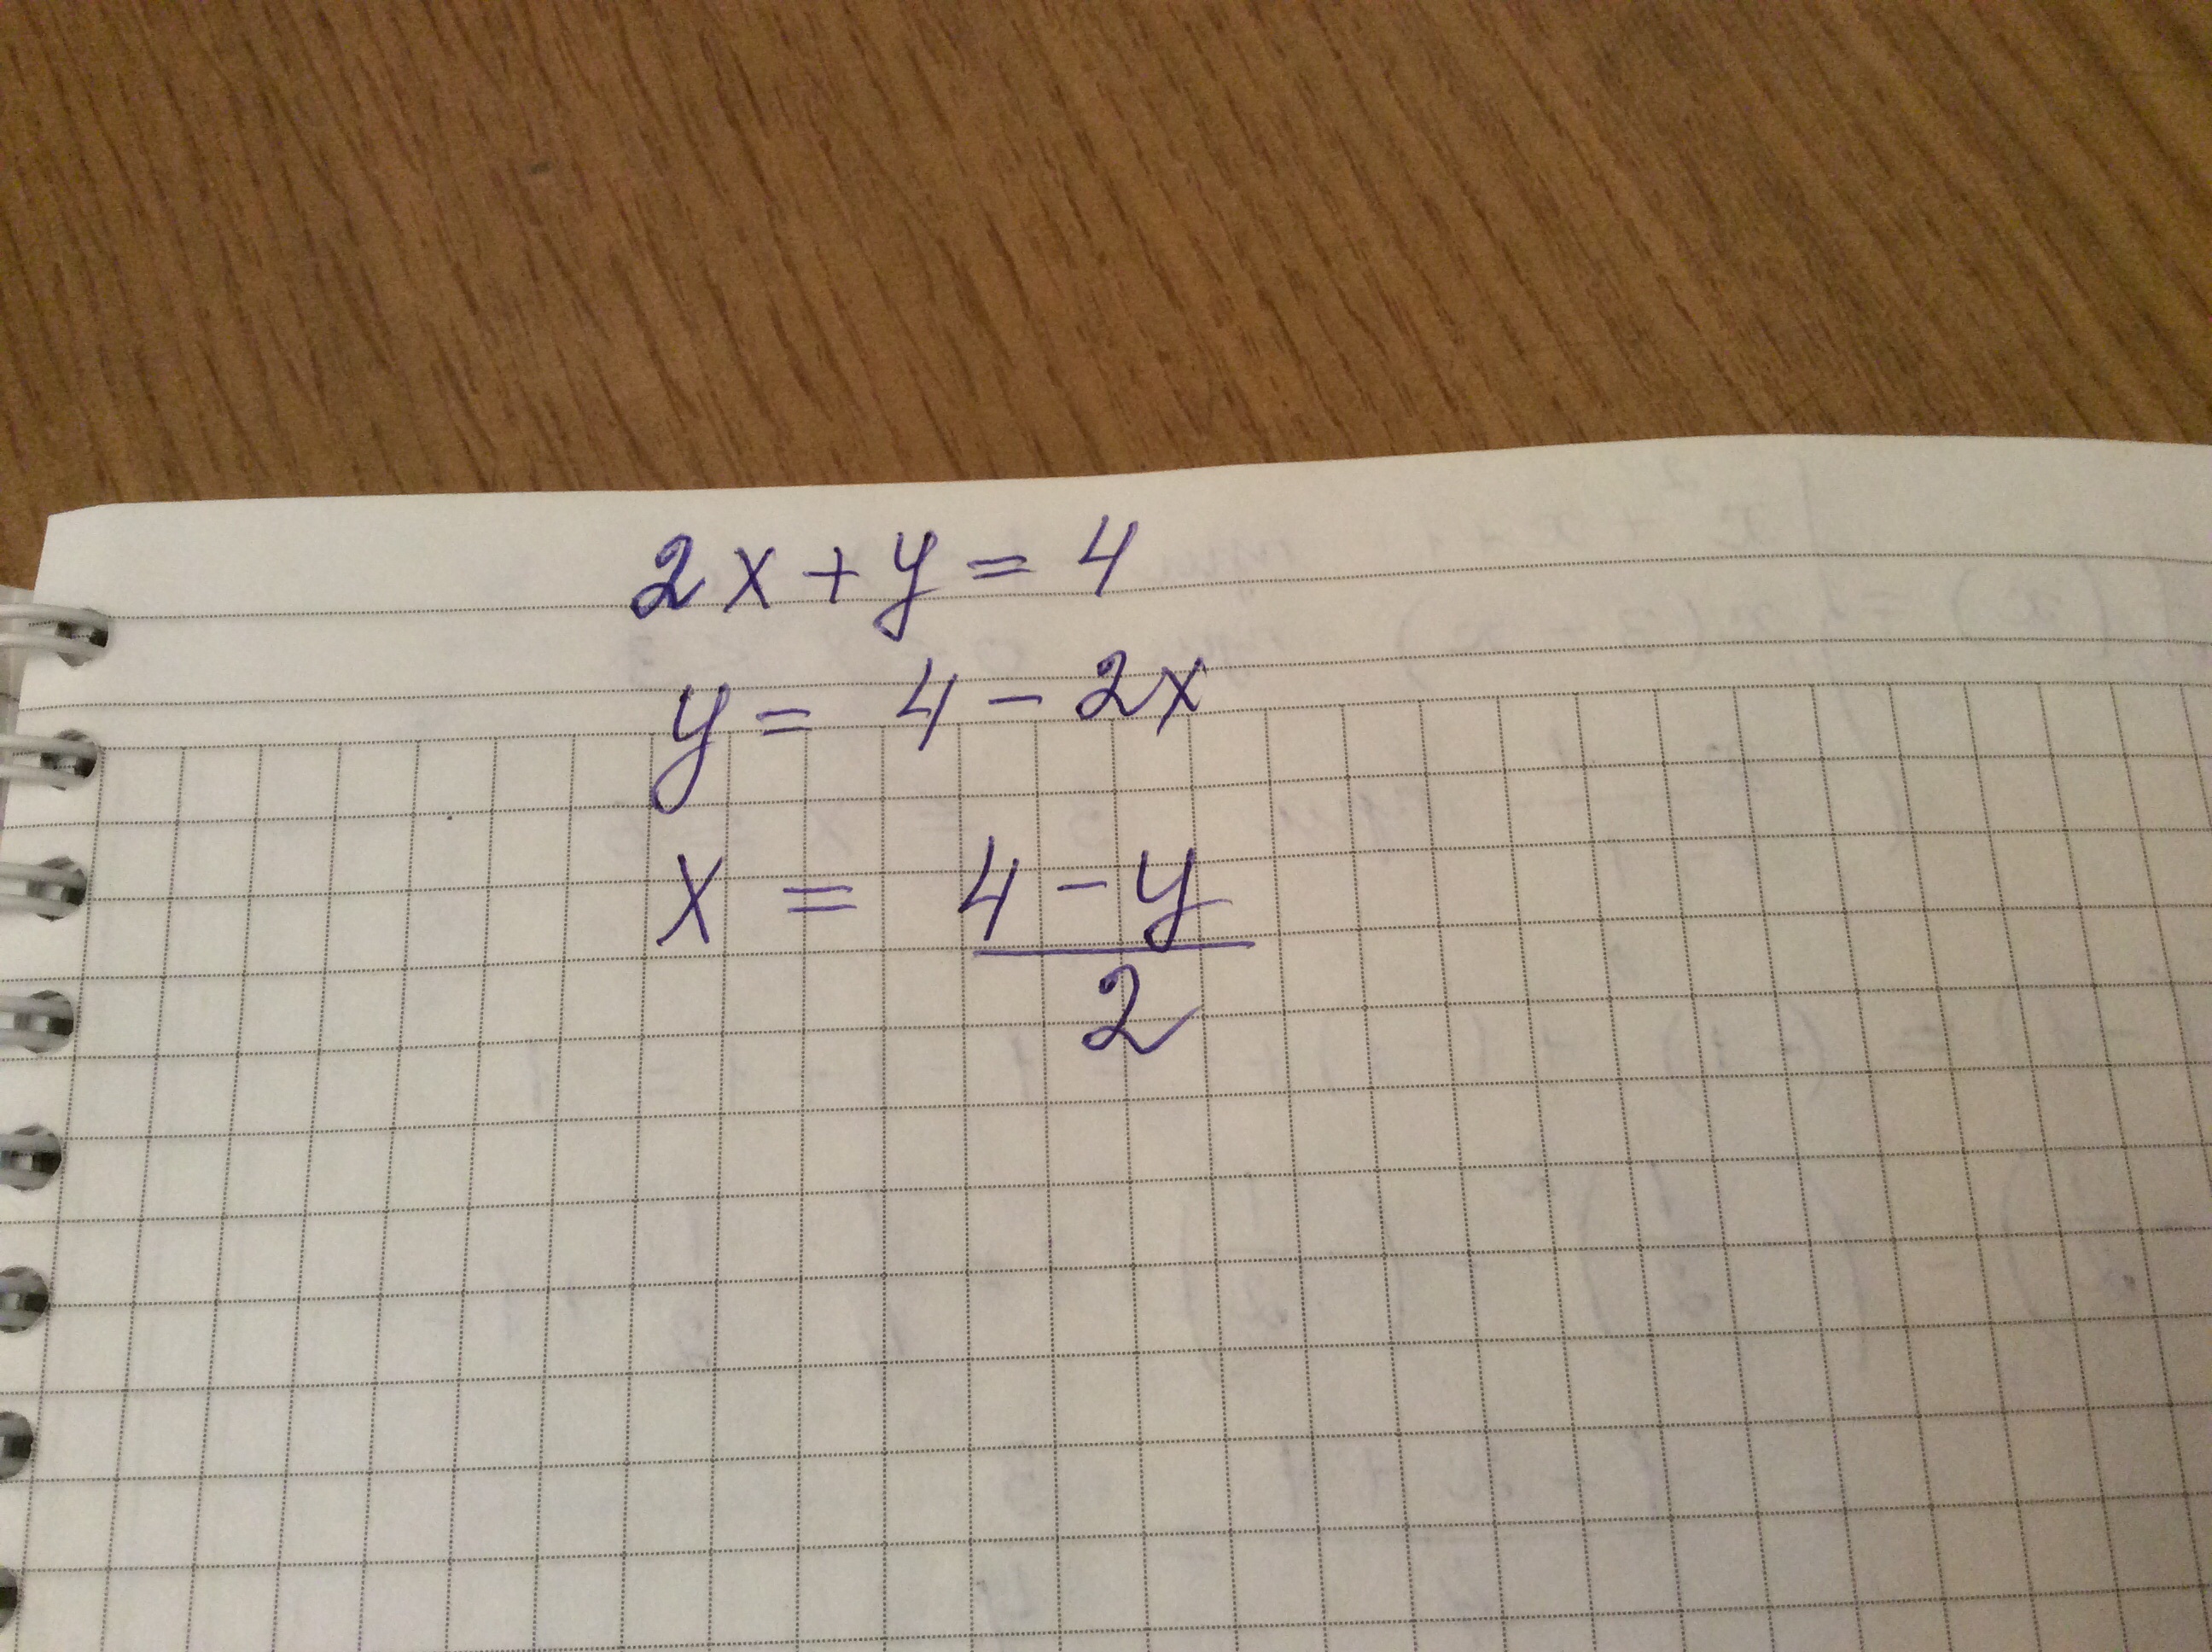 2x + y = 4
y = 4 - 2x
x = (4 - y) / 2